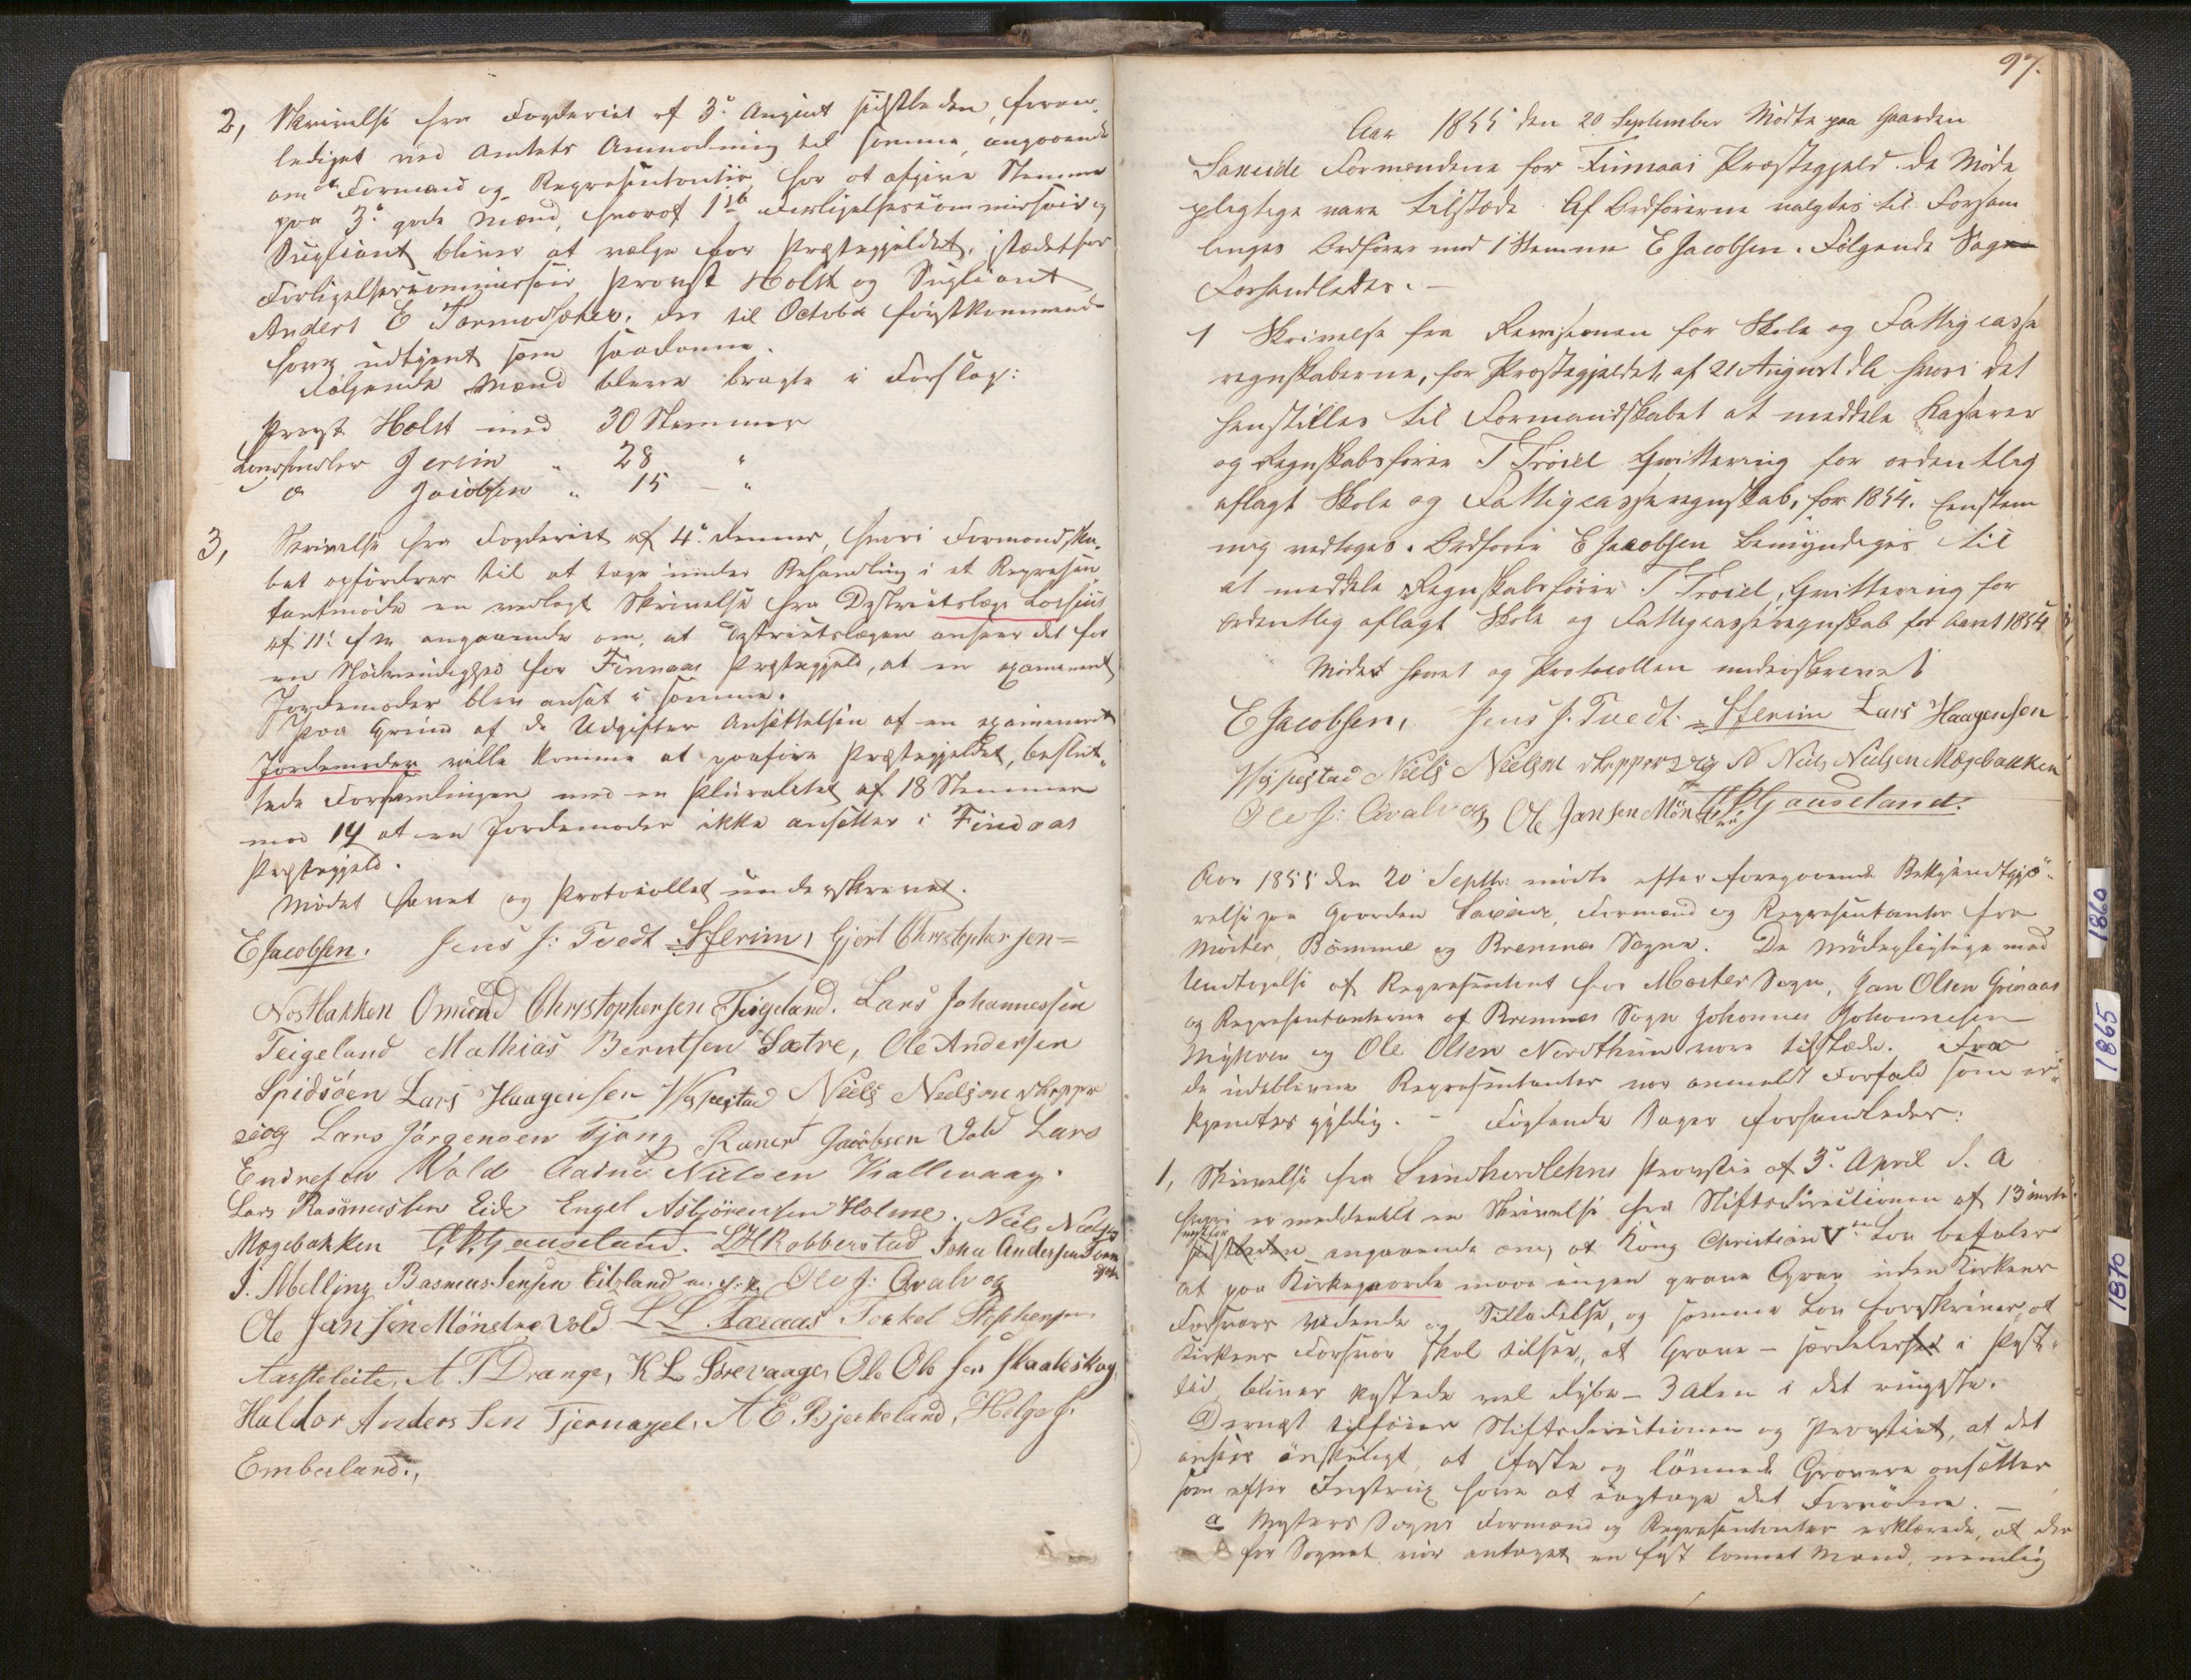 2, Skrivelse fra Fogderiet af 3de August sidstleden, foran-
lediget ved Amtets Anmodning til samme, angaaende
om at Formænd og Repræsentanter har at afgive Stemme
paa 3de gode Mænd, hvoraf 1ste Forligelsescommissair og
Suppliant bliver at vælge for Præstegjeldet, istædetfor
Forligelsescommissair Provst Holst og Suppliant
Anders E Tormodsæter, der til October førstkommende
have udtjent som saadanne.
Følgende Mænd bleve bragte i Forslag:
Provst Holst med 30 Stemmer
Landhandler Gerim " 28 "
Jacobsen " 15 — "
3, Skrivelse fra Fogderiet af 4de dennes, hvori Formandska-
bet opfordres til at tage under Behandling i et Repræsen-
tantmøde en vedlagt Skrivelse fra Distriktslæge Lossius
af 11te f.m. angaaende om, at Distriktslægen anseer det for
en Nødvendighed for Finnaas Præstegjeld, at en examineret
Jordemoder blev ansat i samme.
Paa Grund af de Udgifter Ansættelsen af en examineret
Jordemoder ville komme at paaføre Præstegjeldet, beslut-
tede Forsamlingen med en Pluralitet af 18 Stemmer
mod 14 at en Jordemoder ikke ansættes i Findaas
Præstegjeld.
Mødet hævet og Protocollet underskrevet.
E Jacobsen. Jens J: Tvedt Gjert Christophersen=
Nordbakken Omund Christophersen Teigeland. Lars Johannessen
Teigeland Mathias Berntsen Sætre, Ole Andersen
Spidsøen Lars Haagensen Niels Nielsen Skeppe
viog Lars Jørgensen Tjong Jacobsen Vold Lars
Endresen Vold Aadne Nielsen Kallevaag.
Lars Rasmussen Eide Engel Asbjörensen Holme. Niels Nielsen
Møgebakken Gauseland. LH Robberstad John Andersen
J. Melling Rasmus Jensen Eitzland m. f. P. Ole J: Qvalvog
Ole Jansen Mönstrevold L L Aaraas Torkel Stephensen
Aarsteleite, A. T Drange, K L Grevaage, Ole Olesen Skaaleskog,
Haldor Andersen Tjernagel, A E. Bjerkeland, Helge J.
Emberland.,
97.
Aar 1855 den 20 September Mødte paa Gaarden
Saxeide Formændene for Finnaas Præstegjeld. De Møde
pligtige vare tilstæde. Af Ordførerne valgtes til Forsam
linges Ordfører med 1 Stemme E Jacobsen. Følgende Sag
Forhandledes. —
1 Skrivelse fra Revisionen for Skole og Fattigcasse
regnskaberne, for Præstegjeldet, af 21 August dA hvori det
henstilles til Formandskabet at meddele Kasserer
og Regnskabsfører T Troiel Qvittering for ordentlig
aflagt Skole og Fattigcasseregnskab, for 1854. Eenstem
mig vedtoges. Ordfører E Jacobsen bemyndiges til
at meddele Regnskabsfører T Troiel, Qvittering for
ordentlig aflagt Skole og Fattigcasseregnskab for Aaret 1854
Mødet hævet og Protocollen underskrevet
E Jacobsen, Jens J. Tvedt. Lars Haagensen
Niels Nielsen Skeppeviog Niels Nielsen Møgebakken
Ole J: Qvalvog Ole Jansen Mön Gauseland.
Aar 1855 den 20 Septbr: mødte efter foregaaende Bekjendtgjø-
relse paa Gaarden Saxeide, Formænd og Repræsentanter fra
Moster, Bømmel og Bremnes Sogne. De Mødepligtige med
Undtagelse af Repræsentant for Moster Sogn, Jan Olsen Grinaas
og Repræsentanterne af Bremnes Sogn Johannes Johannesen
Mykven og Ole Olsen Nordthun vare tilstæde. Fra
de udeblevne Repræsentanter var anmeldt Forfald som er-
kjendtes gyldig. — Følgende Sager forhandledes:
1, Skrivelse fra Sundhordlehns Provsti af 3de April d. A
hvori er meddeelt en Skrivelse fra Stiftsdirectionen af 13 Marts
angaaende om, at Kong Christian Vtes Lov befaler
at paa Kirkegaarde maae ingen grave Grav uden Kirkens
Forsvars Vidende og Tilladelse, og samme Lov foreskriver, at
Kirkens Forsvar skal tilsee, at Grave – særdeles i Pest-
tid, bliver kastede vel dybe – 3 Alen i det ringeste.
Dernæst tilføier Stiftsdirectionen og Provstiet, at det
ansees ønskeligt, at faste og lønnede Gravere ansættes
som efter Instrux have at iagttage det Fornødne. —
a Mosters Sogns Formænd og Repræsentanter erklærede, at der
for Sognet var antaget en fast lønnet Mand, nemlig
1860
1865
1870